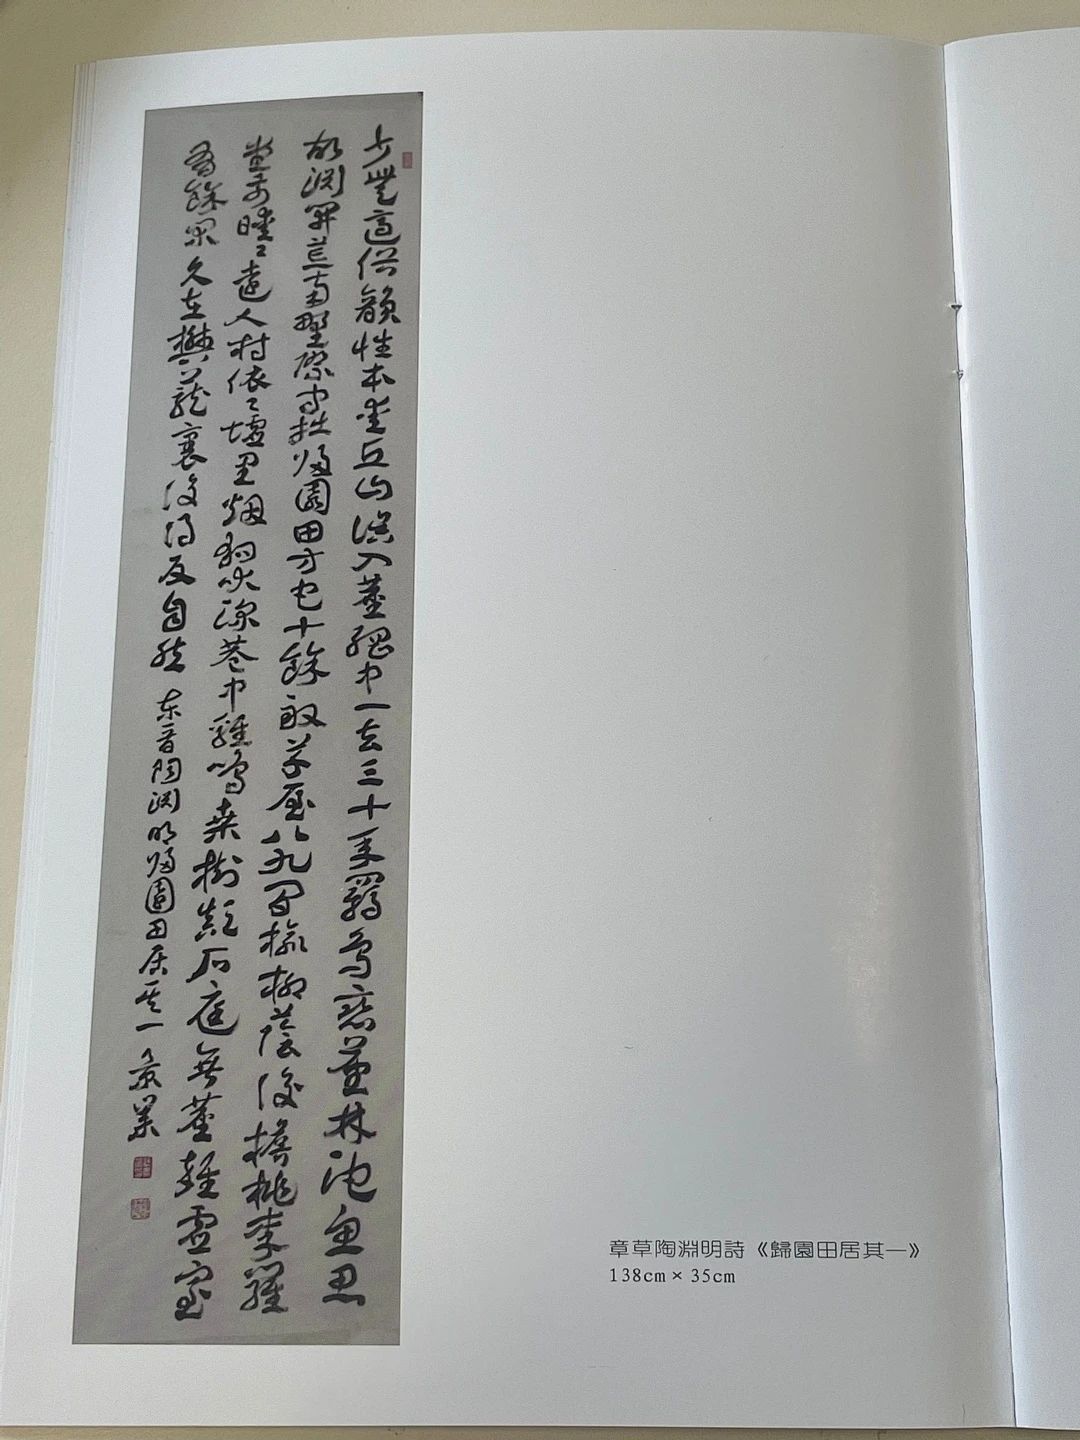 少無適俗韻性本愛丘山誤入塵網中一去三十年羈鳥戀舊林池魚思
故淵開荒南野際守拙歸園田方宅十餘畝草屋八九間榆柳蔭後檐桃李羅
堂前曖〻遠人村依〻墟里烟狗吠深巷中雞鳴桑樹顛戶庭無塵雜虛室
有餘閑久在樊籠裏復得反自然 东晉陶淵明歸園田居其一 景
章草陶淵明詩《歸園田居其一》
138cm×35cm